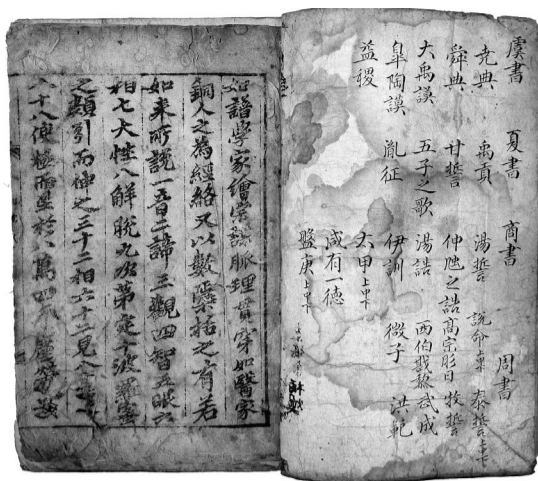 虞書 夏書 商書 周書
堯典 禹貢 湯誓 說命上中下 泰誓上中下
舜典 甘誓 仲虺之誥 高宗肜日 牧誓
大禹謨 五子之歌 湯誥 西伯戡黎 武成
皐陶謨 胤征 伊訓 微子 洪範
益稷 太甲上中下
咸有一德
盤庚上中下
如譜學家繪宗譜脉理貫穿如醫家
銅人之為經絡又以數櫽括之有若
如來所說一音二諦三觀四智五眼六
相七大性八解脫九次第定十波羅蜜
之類引而伸之三十二相六十二見八
八十八使極而至於八萬四千塵勞